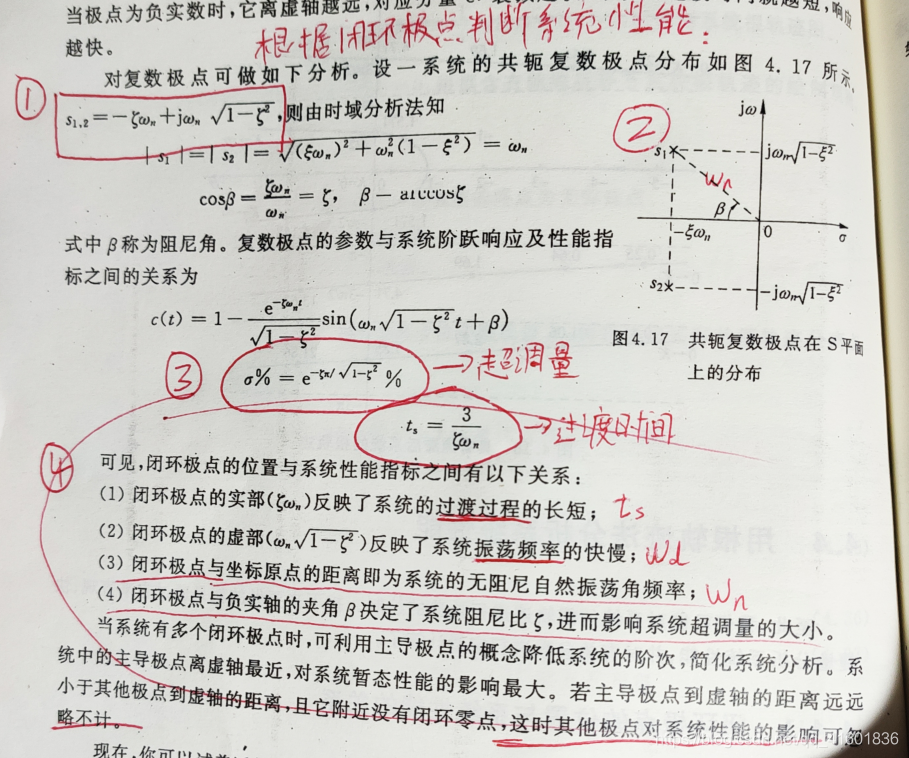 当极点为负实数时,它离虚轴越远,对应分量
越短,响应
越快。
根据闭环极点判断系统性能:
对复数极点可做如下分析。设一系统的共轭复数极点分布如图 4.17 所示,
①
s₁,₂=-ζωₙ+jωₙ √1-ζ²,则由时域分析法知
| s₁ |=| s₂ |= √(ξωₙ)²+ωₙ²(1-ξ²) = ωₙ
cosβ = ζωₙ/ωₙ = ζ, β = arccosζ
式中 β 称为阻尼角。复数极点的参数与系统阶跃响应及性能指
标之间的关系为
c(t) = 1 - e^(-ζωₙt)/√1-ζ² sin(ωₙ√1-ζ² t + β)
②
jω
s₁
jωₙ√1-ξ²
ωₙ
β
-ξωₙ
0
σ
s₂
-jωₙ√1-ξ²
图4.17 共轭复数极点在 S 平面
上的分布
③
σ% = e^(-ζπ/√1-ζ²) %
→超调量
tₛ = 3/ζωₙ
→过渡时间
④
可见,闭环极点的位置与系统性能指标之间有以下关系:
(1) 闭环极点的实部(ζωₙ)反映了系统的过渡过程的长短; ts
(2) 闭环极点的虚部(ωₙ√1-ζ²)反映了系统振荡频率的快慢; ωd
(3) 闭环极点与坐标原点的距离即为系统的无阻尼自然振荡角频率; ωn
(4) 闭环极点与负实轴的夹角 β 决定了系统阻尼比 ζ,进而影响系统超调量的大小。
当系统有多个闭环极点时,可利用主导极点的概念降低系统的阶次,简化系统分析。系
统中的主导极点离虚轴最近,对系统暂态性能的影响最大。若主导极点到虚轴的距离远远
小于其他极点到虚轴的距离,且它附近没有闭环零点,这时其他极点对系统性能的影响可忽
略不计。
现在,你可以试着